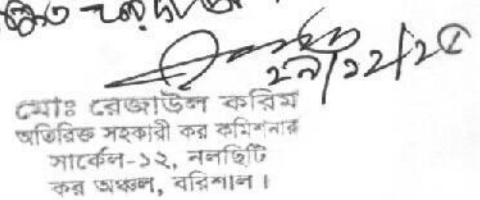 ২৯/১২/২৫
মোঃ রেজাউল করিম
অতিরিক্ত সহকারী কর কমিশনার
সার্কেল-১২, নলছিটি
কর অঞ্চল, বরিশাল।